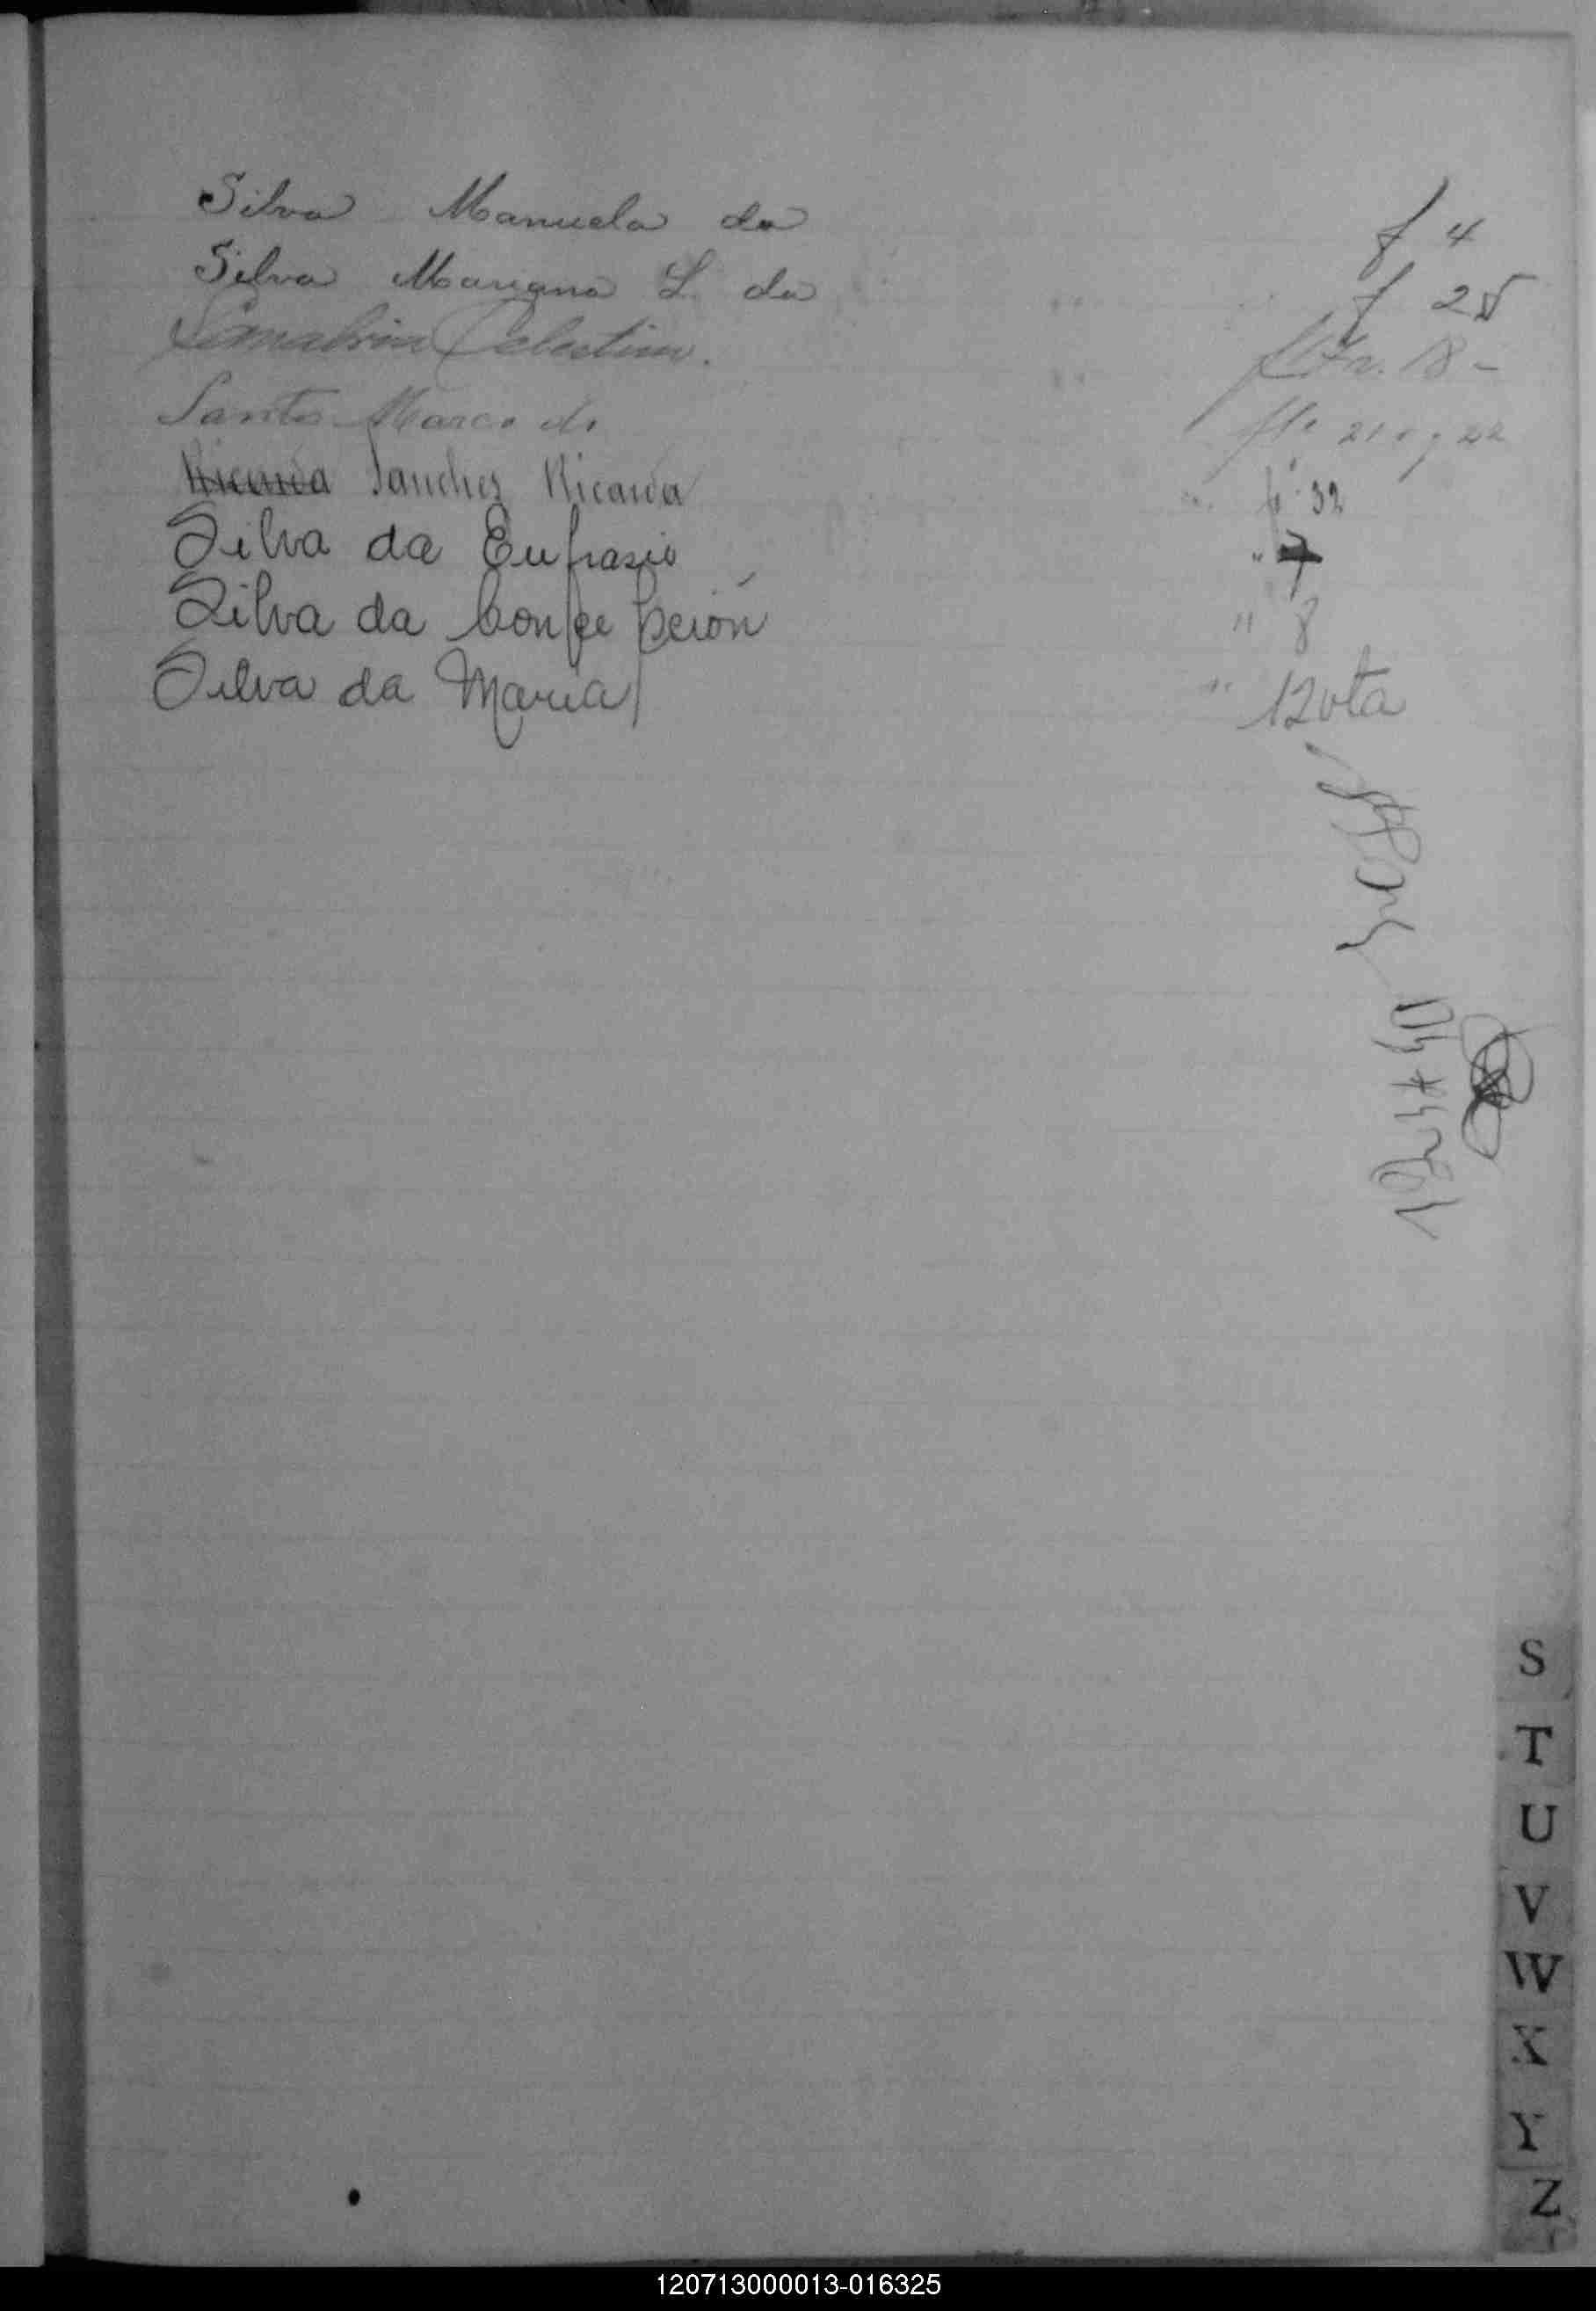 Silva Manuela da f 4
Silva Mariana L. da f 25
Sanabria Celestino. 18 -
Santos Marco do fls 21 v y 22
Ricarda Sanchez Ricarda " f 32
Silva da Eufrasio " 7
Silva da Confección " 8
Silva da Maria " 12vta
S
T
U
V
W
X
Y
Z
120713000013-016325